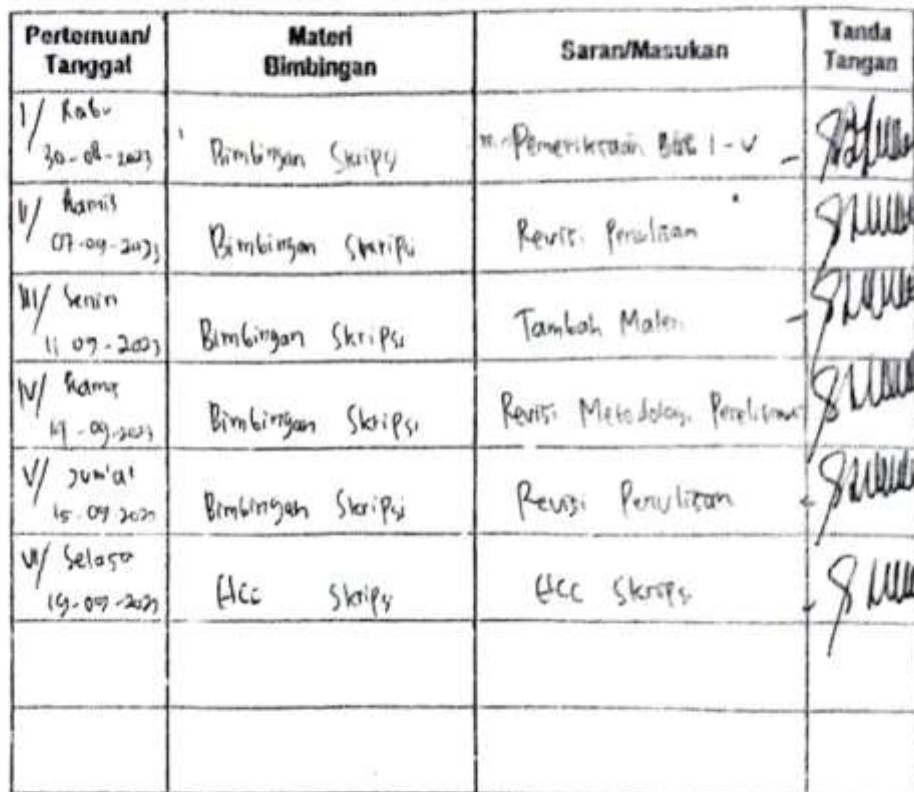 Pertemuan/
Tanggal
Materi
Bimbingan
Saran/Masukan
Tanda
Tangan
I/ Rabu
30-08-2023
Bimbingan Skripsi
Pemeriksaan BAB I-V
II/ Kamis
07-09-2023
Bimbingan Skripsi
Revisi Penulisan
III/ Senin
11-09-2023
Bimbingan Skripsi
Tambah Materi
IV/ Kamis
14-09-2023
Bimbingan Skripsi
Revisi Metodologi Penelitian
V/ Jum'at
15-09-2023
Bimbingan Skripsi
Revisi Penulisan
VI/ Selasa
19-09-2023
Acc Skripsi
Acc Skripsi